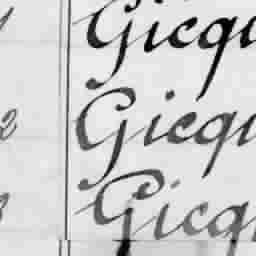 Gicqu
2 Gicqu
3 Gicq